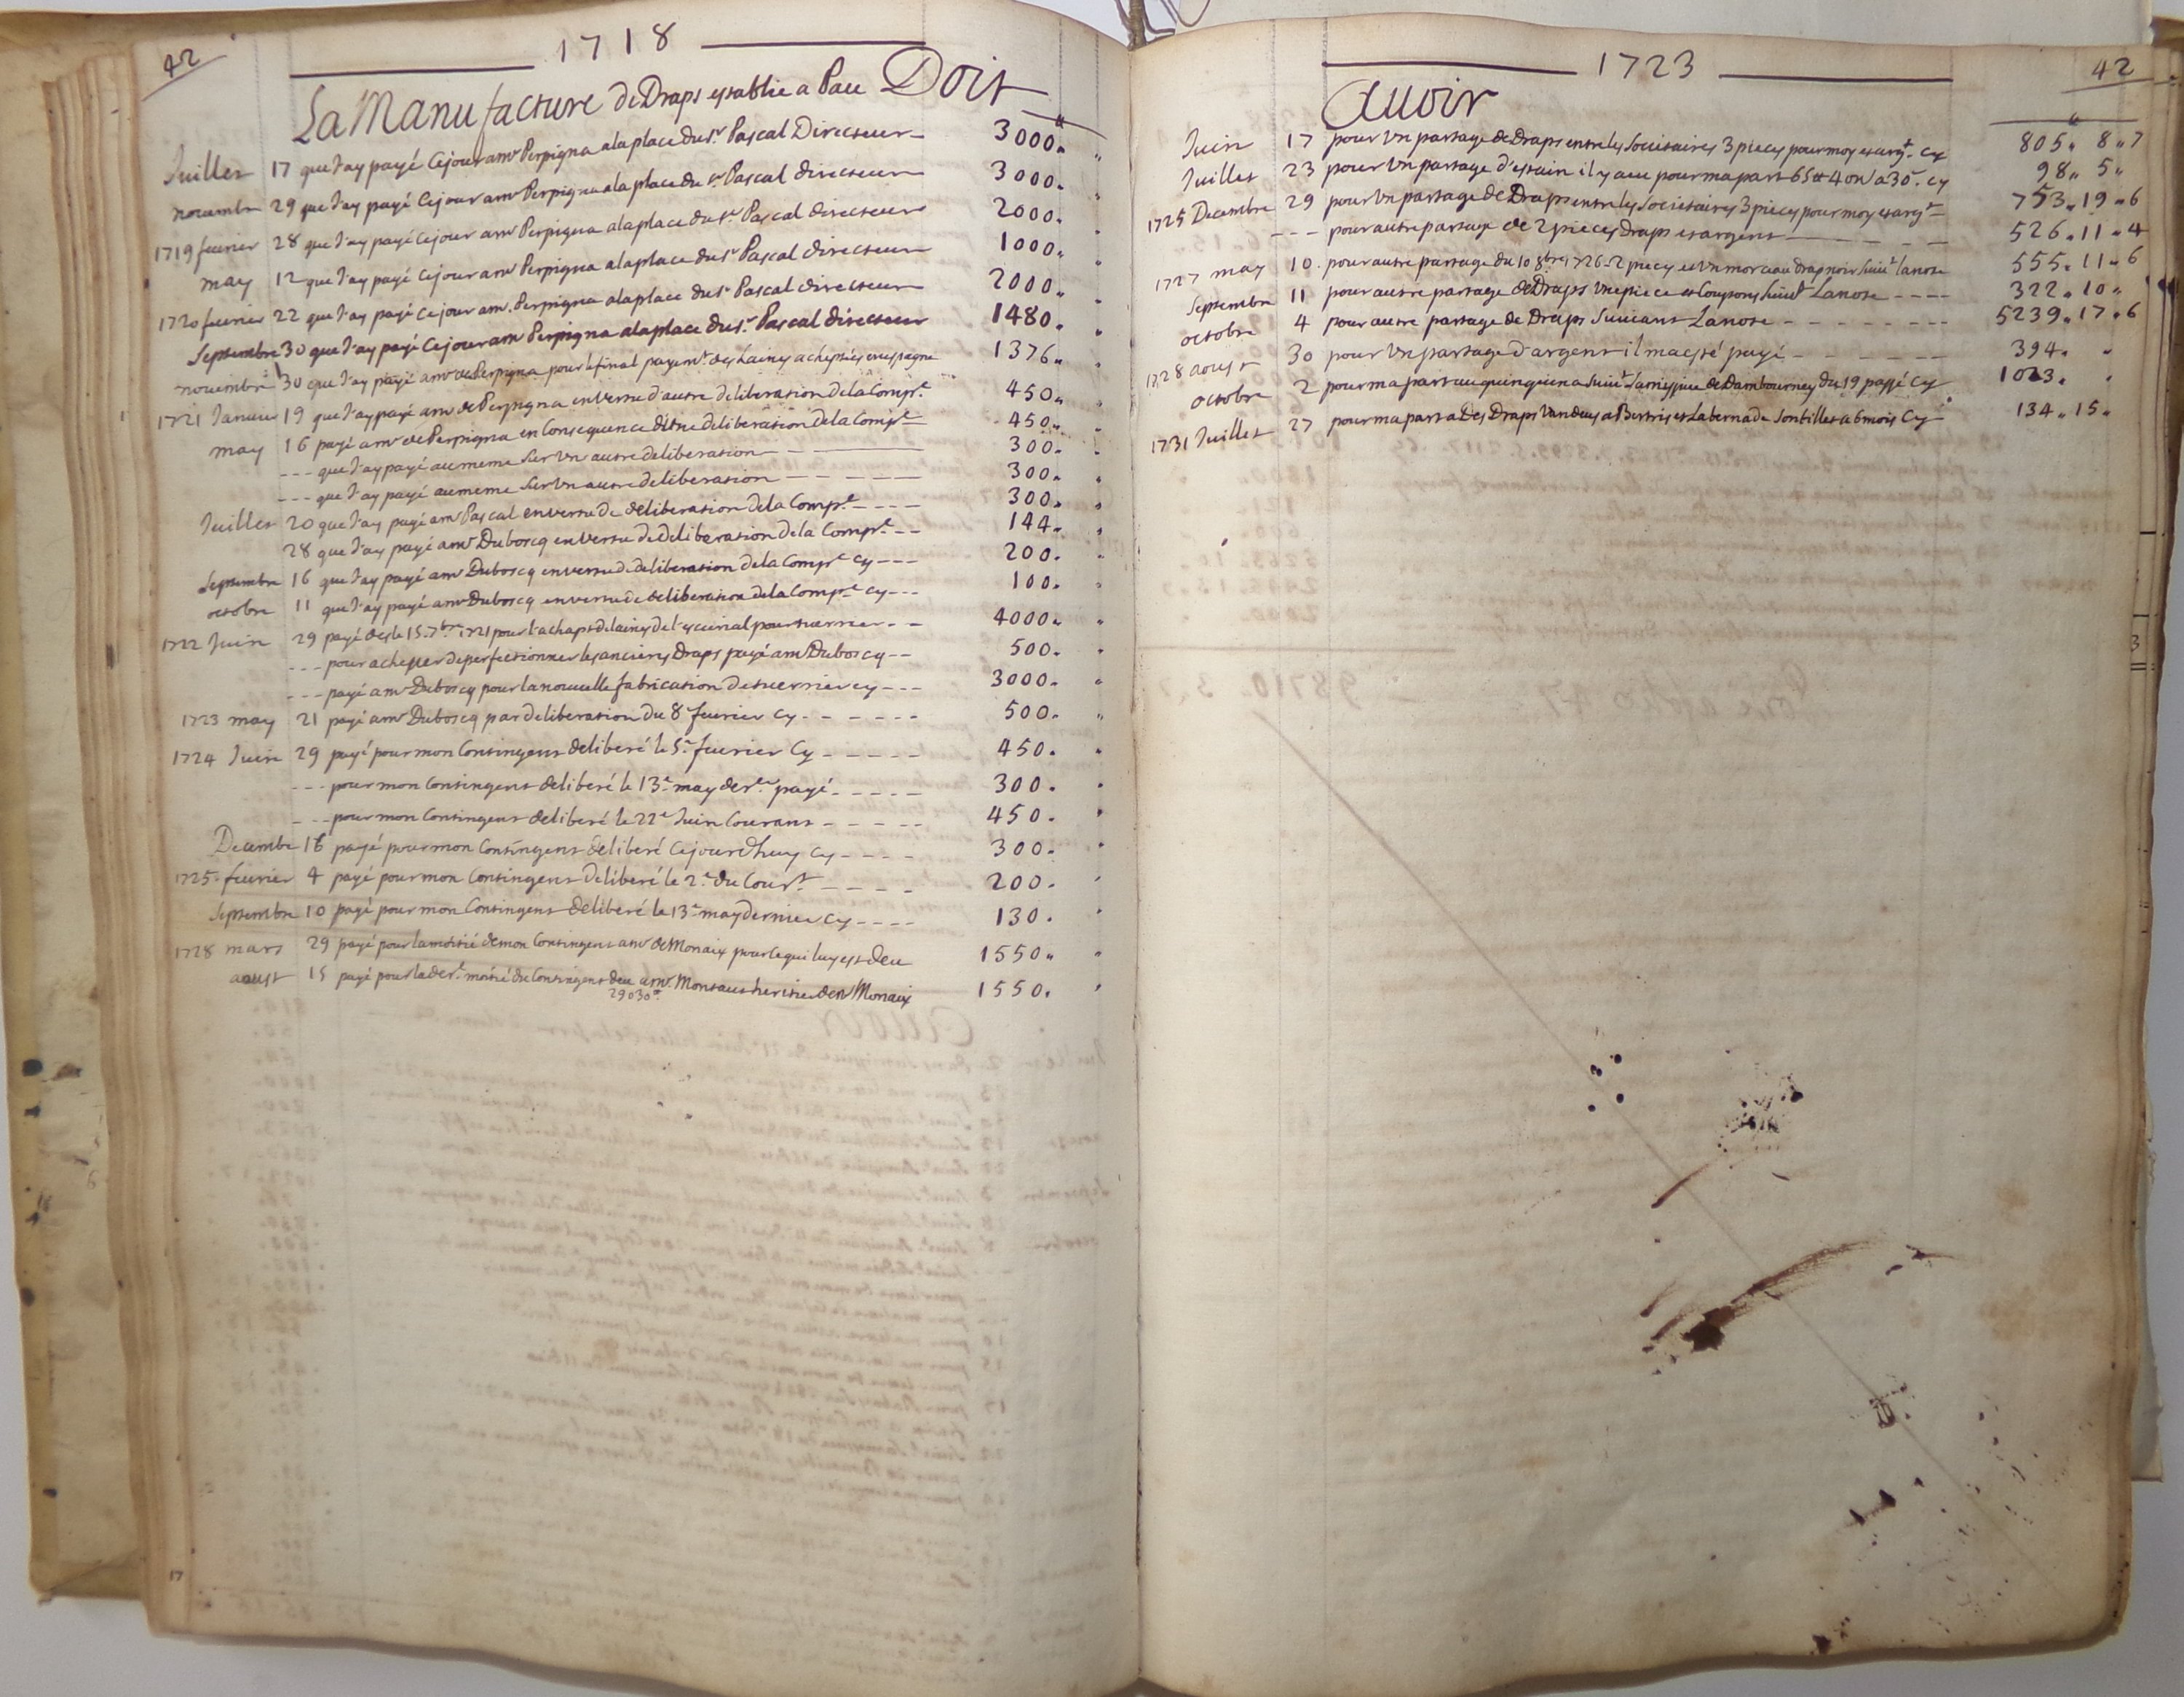 42
1718
La Manufacture de Draps establie a Pau Doit
Juillet 17 que J'ay payé Cejour a mr Perpigna ala place du sr. Pascal Directeur 3000
novembre 29 que J'ay payé Cejour a mr Perpigna ala place du sr Pascal directeur 3000
1719 fevrier 28 que J'ay payé Cejour a mr Perpigna ala place du sr. Pascal directeur 2000
may 12 que J'ay payé Cejour a mr Perpigna ala place du sr Pascal directeur 1000
1720 fevrier 22 que J'ay payé Cejour a mr. Perpigna ala place du sr Pascal directeur 2000
Septembre 30 que J'ay payé Cejour a mr Perpigna ala place du sr. Pascal directeur 1480
novembre 30 que J'ay payé a mr de Perpigna pour le final payemt des Laines acheptées en espagne 1376
1721 Janvier 19 que J'ay payé a mr de Perpigna en Vertu d'autre deliberation de la Compe. 450
may 16 payé a mr de Perpigna en Consequence d'autre deliberation de la Compe 450
--- que J'ay payé au meme Sur Vn autre deliberation 300
--- que J'ay payé au meme Sur Vn autre deliberation 300
Juillet 20 que J'ay payé a mr Pascal en vertu de deliberation de la Compe 300
28 que J'ay payé a mr Duboscq en Vertu de deliberation de la Compe 144
Septembre 16 que J'ay payé a mr Duboscq en vertu de deliberation de la Compe cy 200
octobre 11 que J'ay payé a mr Duboscq en vertu de deliberation de la Compe cy 100
1722 Juin 29 payé des le 15. 7bre 1721 pour l'achapt de laines de l'escurial pour 4000
--- pour achepter de perfectionner les anciens Draps payé a mr Duboscq 500
--- payé a mr Duboscq pour la nouvelle fabrication cy 3000
1723 may 21 payé a mr Duboscq par deliberation du 8e fevrier cy 500
1724 Juin 29 payé pour mon Contingent deliberé le 5e fevrier Cy 450
--- pour mon Contingent deliberé le 13e may der. payé 300
--- pour mon Contingent deliberé le 22e Juin Courant 450
Decembre 16 payé pour mon Contingent deliberé Cejourdhuy cy 300
1725 fevrier 4 payé pour mon Contingent deliberé le 2e du Court 200
Septembre 10 payé pour mon Contingent deliberé le 13e may dernier cy 130
1728 mars 29 payé pour la moitié de mon Contingent a mr de Monaix pour ce qui luy est deu 1550
aoust 15 payé pour la der. moitié du Contingent deu a mr. Montaut heritier de mr Monaix 1550
29030
1723
42
Auoir
Juin 17 pour Vn partage de Draps entre les Societaires 3 pieces pour moy et argt. cy 805 8 7
Juillet 23 pour Vn partage d'estain il y a eu pour ma part 65 4 on a 30s. cy 98 5
1725 Decembre 29 pour Vn partage de Draps entre les Societaires 3 pieces pour moy et argt 753 19 6
--- pour autre partage de 2 pieces draps et argent 526 11 4
1727 may 10 pour autre partage du 10 8bre 1726 2 pieces et Vn morceau drap noir suivt lanote 555 11 6
Septembre 11 pour autre partage de Draps Vne piece et Coupons Suivt Lanote 322 10
octobre 4 pour autre partage de Draps Suivant Lanote 5239 17 6
1728 aoust 30 pour Vn partage d'argent il ma esté payé 394
octobre 2 pour ma part au quinquina Suivt de Dambourney du 19 passé cy 1023
1731 Juillet 27 pour ma part a Des Draps Vandeus a Bertris et Labernade Son billet a 6 mois Cy 134 15